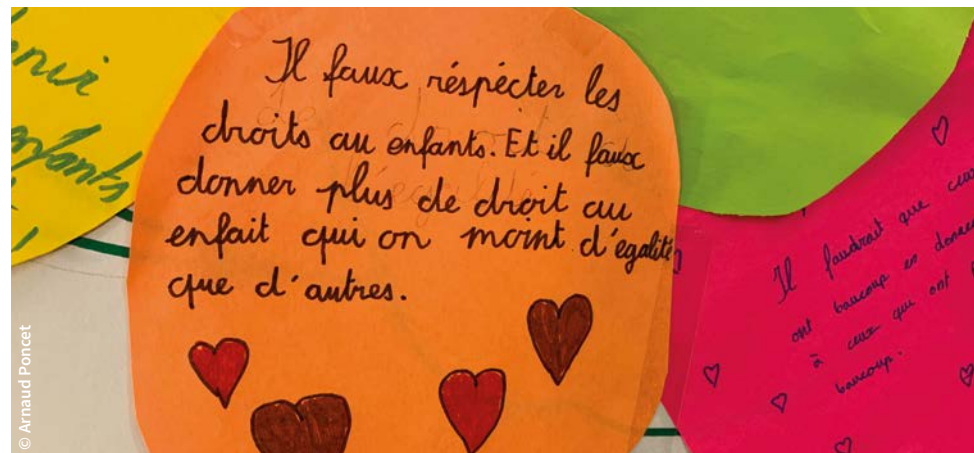 enir
enfants
Il faux réspécter les
droits au enfants. Et il faux
donner plus de droit au
enfait qui on moint d'égalité
que d'autres.
Il faudrait que ceux
ont baucoup en donne
à ceux qui ont
baucoup.
© Arnaud Poncet